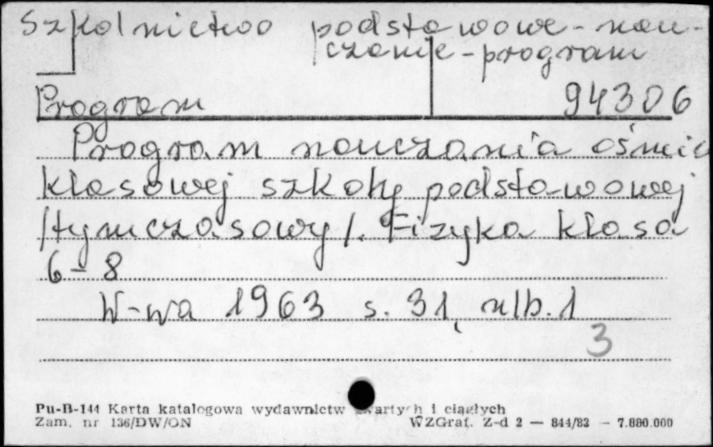 Szkolnictwo podstawowe - nau-
czanie - program
Program 94306
Program nauczania ośmio
klasowej szkoły podstawowej
/tymczasowy/. Fizyka klasa
6-8
W-wa 1963 s. 31, nlb. 1
3
Pu-B-144 Karta katalogowa wydawnictw zwartych i ciągłych
Zam. nr 136/DW/ON WZGraf. Z-d 2 — 844/82 — 7.880.000